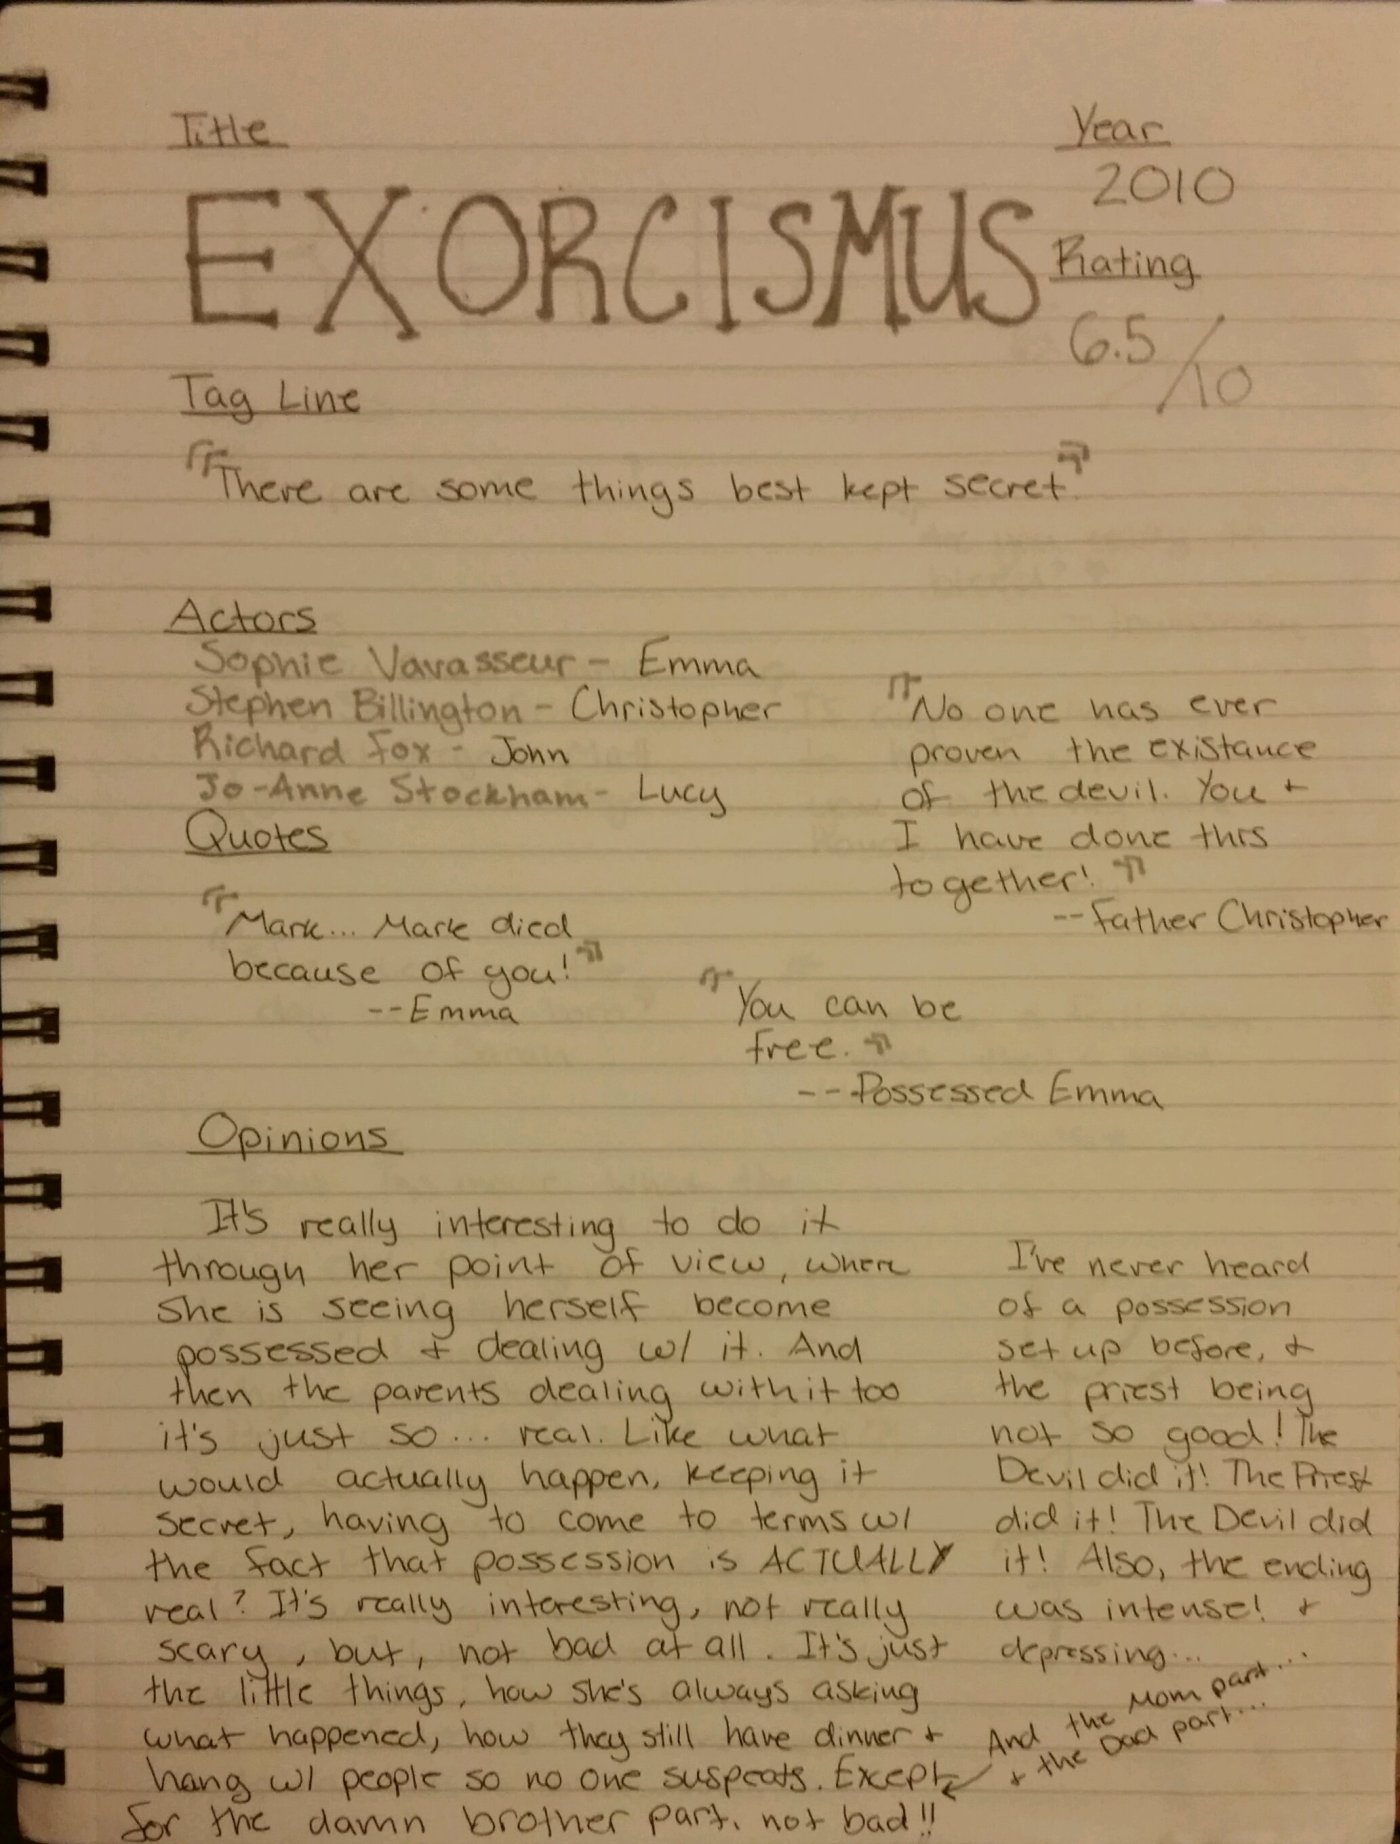 Title
EXORCISMUS
Year
2010
Rating
6.5/10
Tag Line
"There are some things best kept secret."
Actors
Sophie Vavasseur - Emma
Stephen Billington - Christopher
Richard Fox - John
Jo-Anne Stockham - Lucy
Quotes
"Mark... Mark died
because of you!"
--Emma
"No one has ever
proven the existance
of the devil. You +
I have done this
together!"
--Father Christopher
"You can be
free."
---Possessed Emma
Opinions
It's really interesting to do it
through her point of view, where
she is seeing herself become
possessed + dealing w/ it. And
then the parents dealing with it too
it's just so... real. Like what
would actually happen, keeping it
secret, having to come to terms w/
the fact that possession is ACTUALLY
real? It's really interesting, not really
scary, but, not bad at all. It's just
the little things, how she's always asking
what happened, how they still have dinner +
hang w/ people so no one suspects. Except
for the damn brother part. not bad!!
And the Mom part...
+ the Dad part...
I've never heard
of a possession
set up before, +
the priest being
not so good! The
Devil did it! The Priest
did it! The Devil did
it! Also, the ending
was intense! +
depressing...